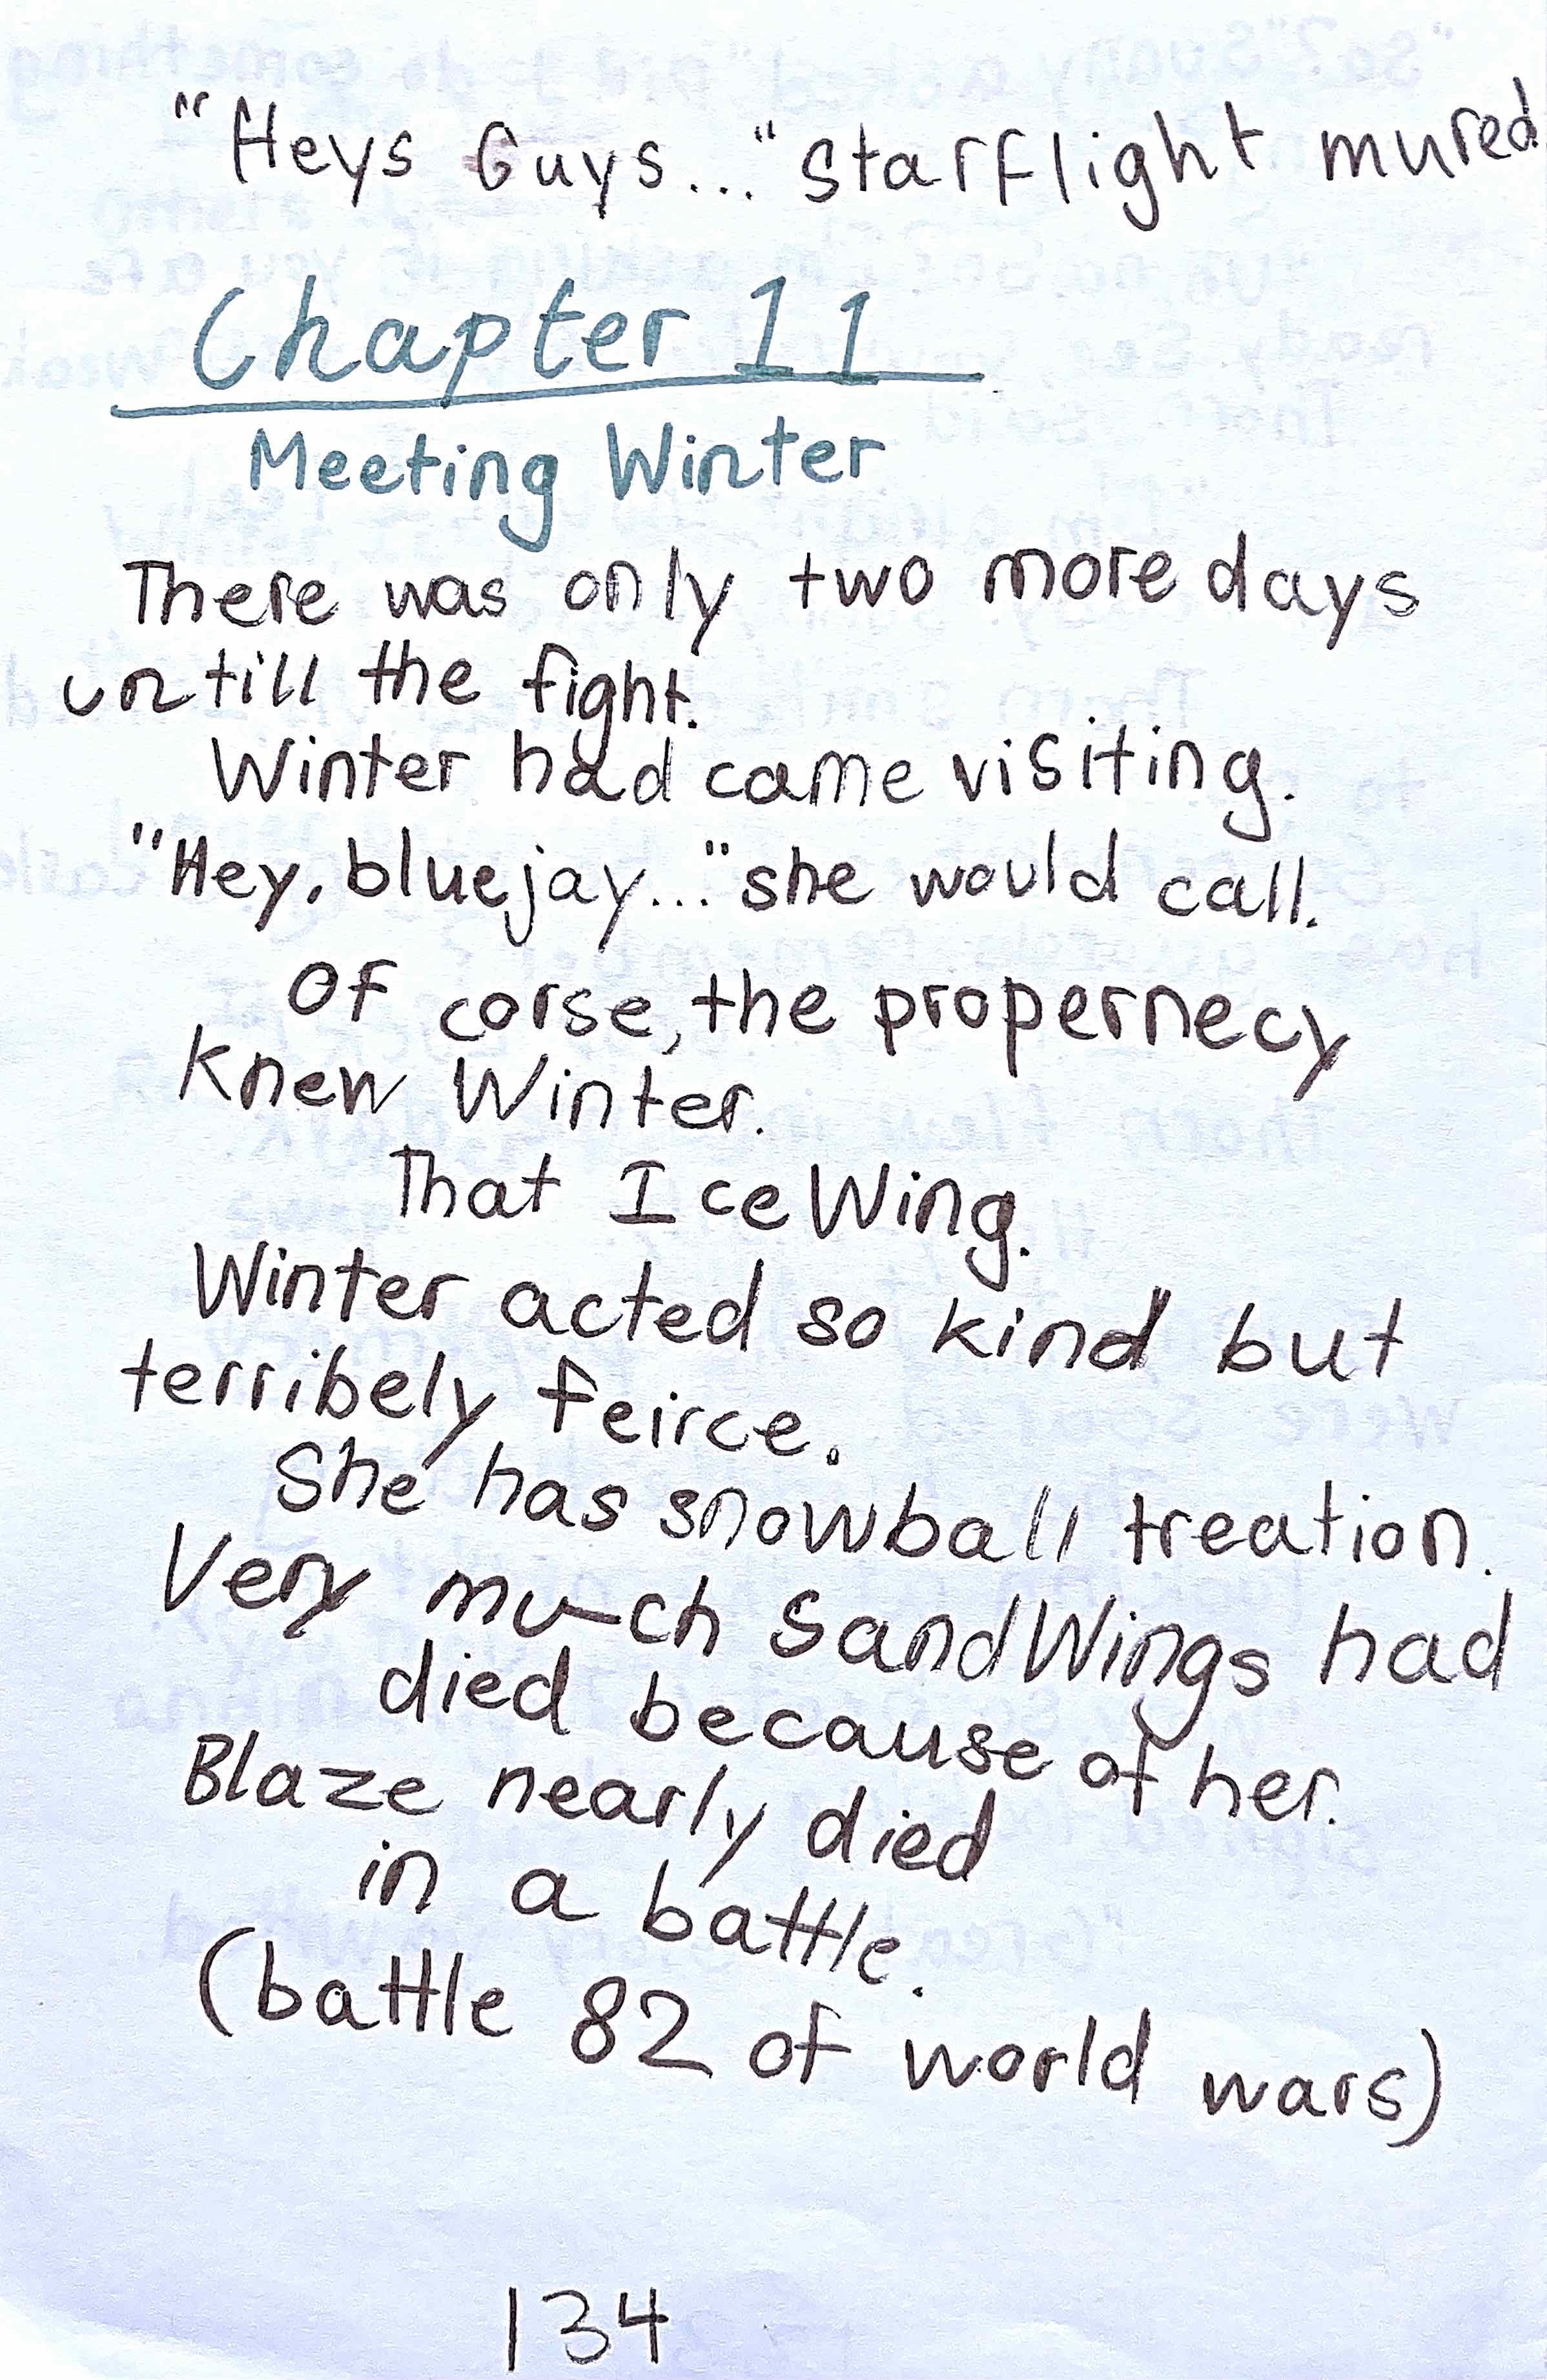 "Heys Guys..." Starflight mured.
Chapter 11
Meeting Winter
There was only two more days
untill the fight.
Winter had came visiting.
"Hey, bluejay..." she would call.
Of corse, the propernecy
knew Winter.
That IceWing.
Winter acted so kind but
terribely feirce.
She has snowball treation.
Very much SandWings had
died because of her.
Blaze nearly died
in a battle.
(battle 82 of world wars)
134